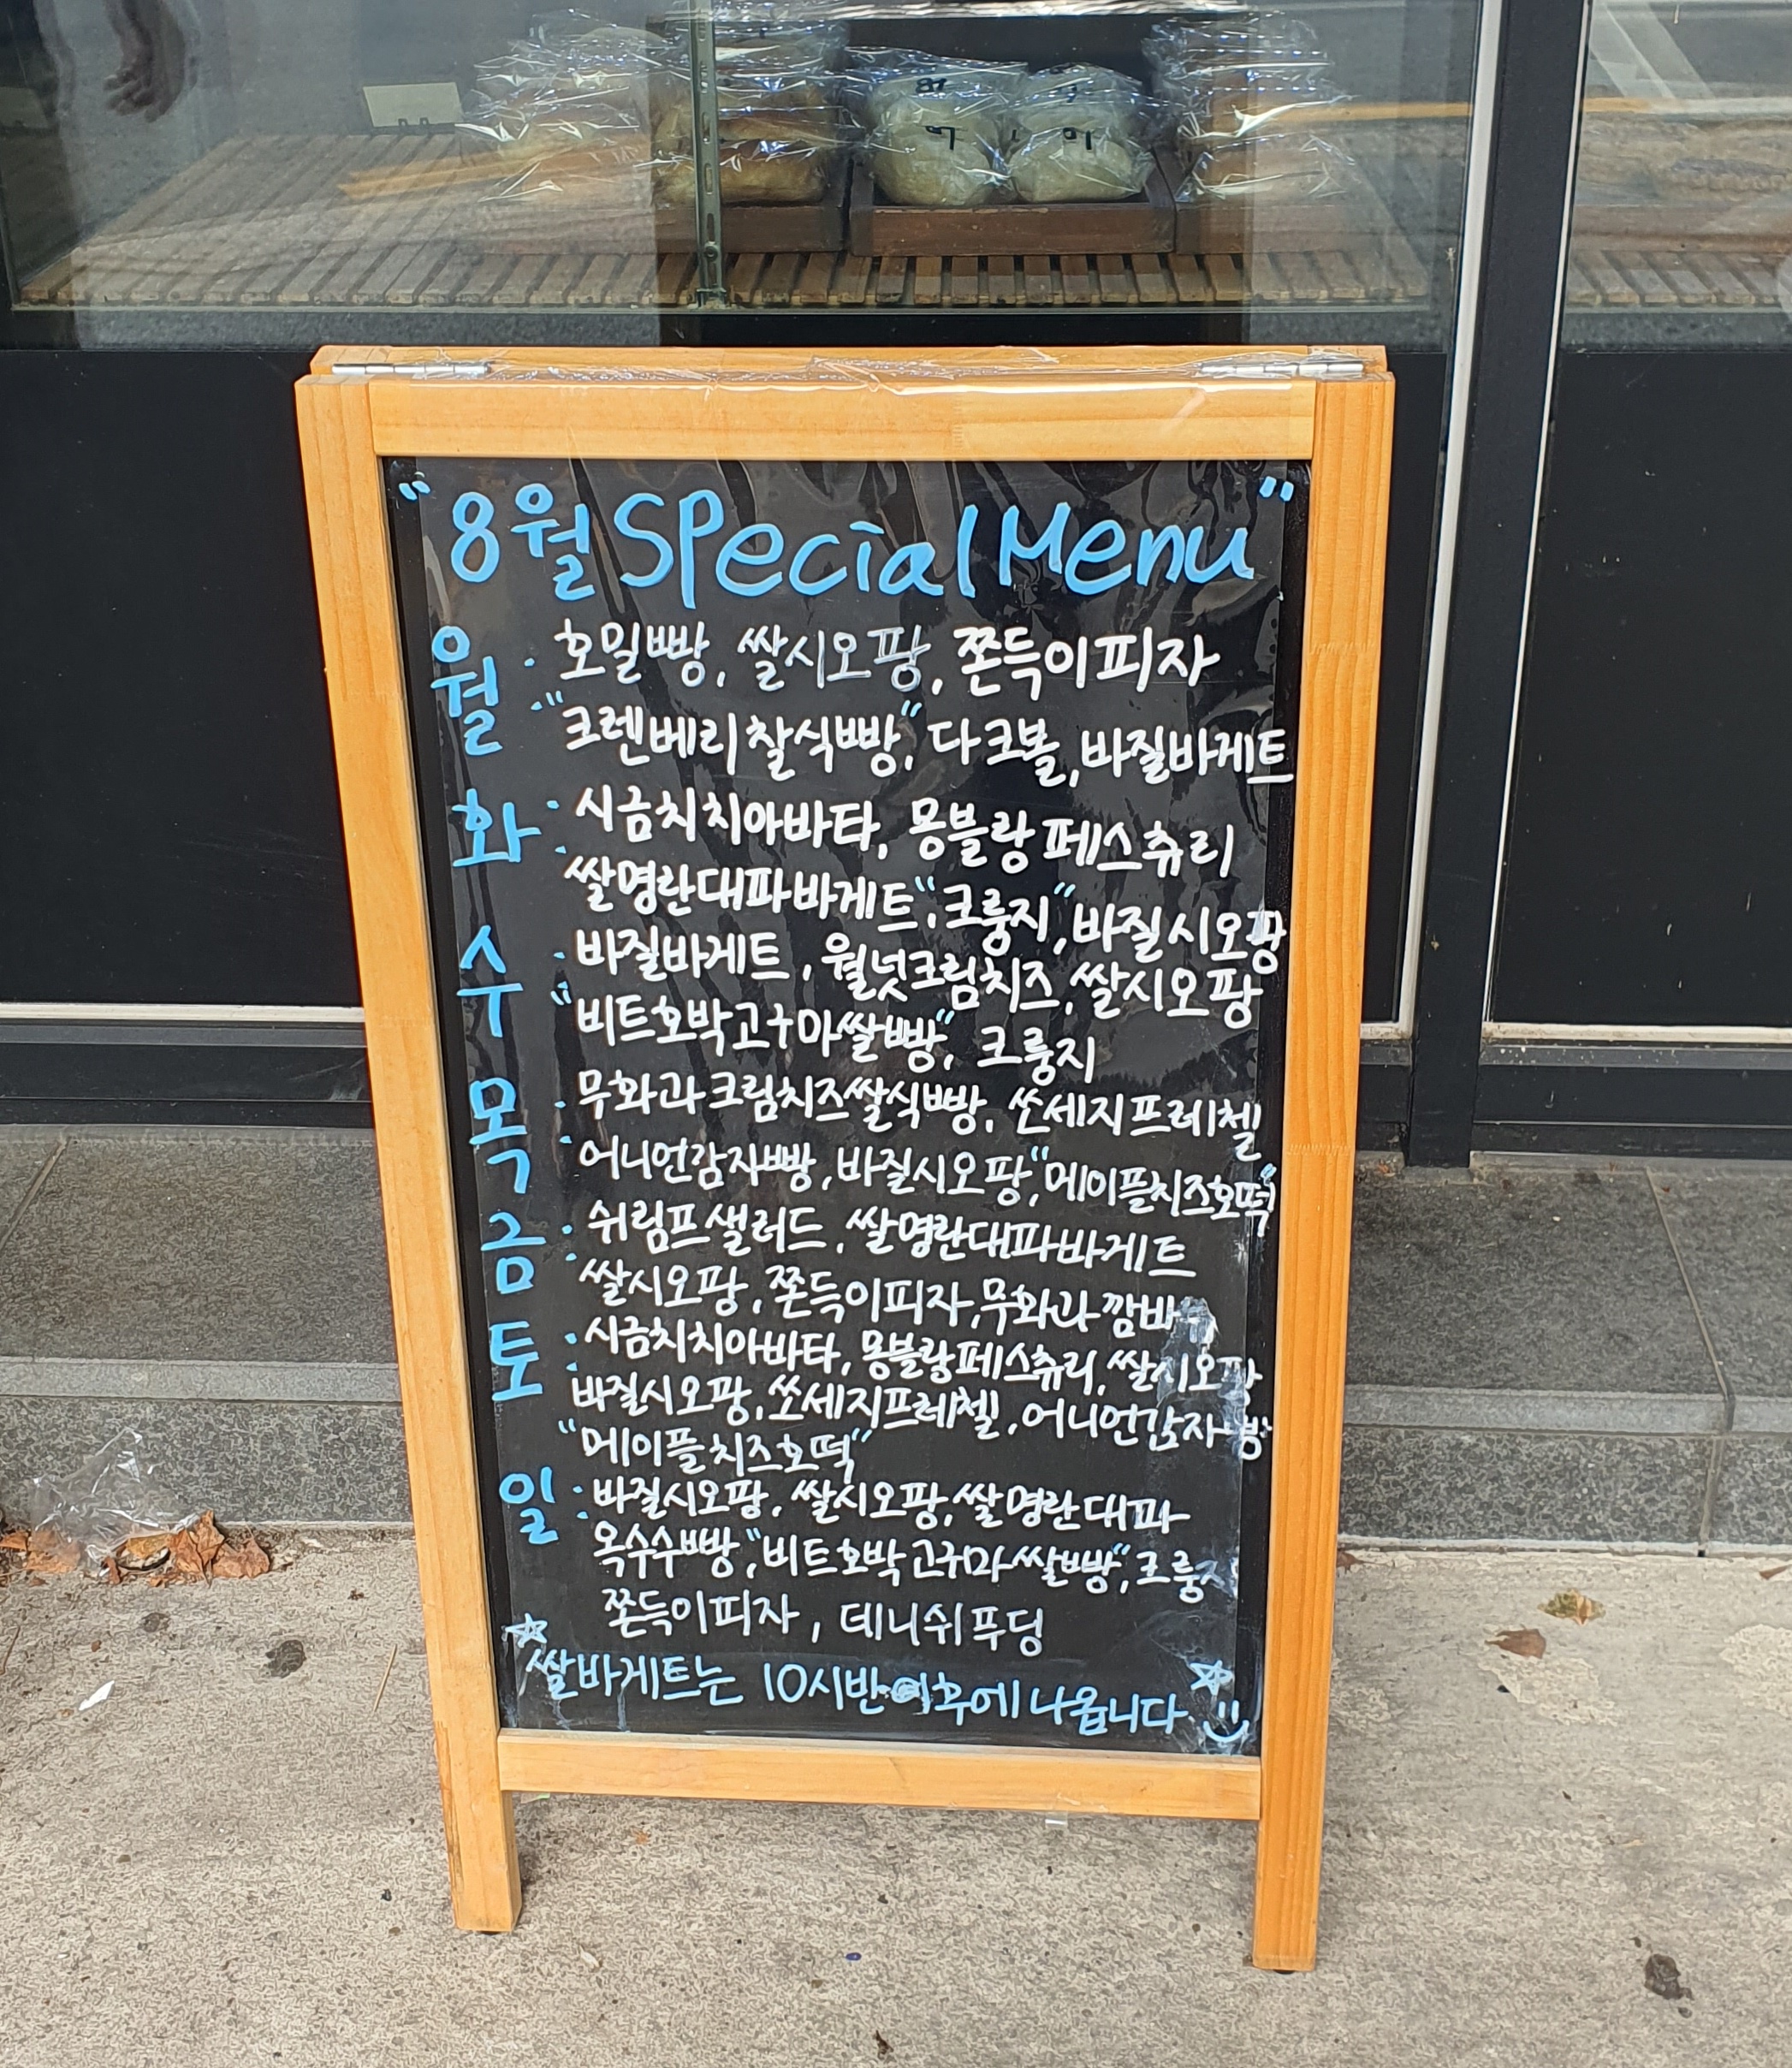 "8월 Special Menu"
월 : 호밀빵, 쌀시오팡, 쫀득이피자
"크렌베리찰식빵", 다크볼, 바질바게트
화 : 시금치치아바타, 몽블랑페스츄리
쌀명란대파바게트, "크룽지", 바질시오팡
수 : 바질바게트, 월넛크림치즈, 쌀시오팡
"비트호박고구마쌀빵", 크룽지
목 : 무화과크림치즈쌀식빵, 쏘세지프레첼
어니언감자빵, 바질시오팡, "메이플치즈호떡"
금 : 쉬림프샐러드, 쌀명란대파바게트
쌀시오팡, 쫀득이피자, 무화과
토 : 시금치치아바타, 몽블랑페스츄리, 쌀시오팡
바질시오팡, 쏘세지프레첼, 어니언감자빵
"메이플치즈호떡"
일 : 바질시오팡, 쌀시오팡, 쌀명란대파
옥수수빵, "비트호박고구마쌀빵", 크룽지
쫀득이피자, 데니쉬푸딩
쌀바게트는 10시반이후에 나옵니다.